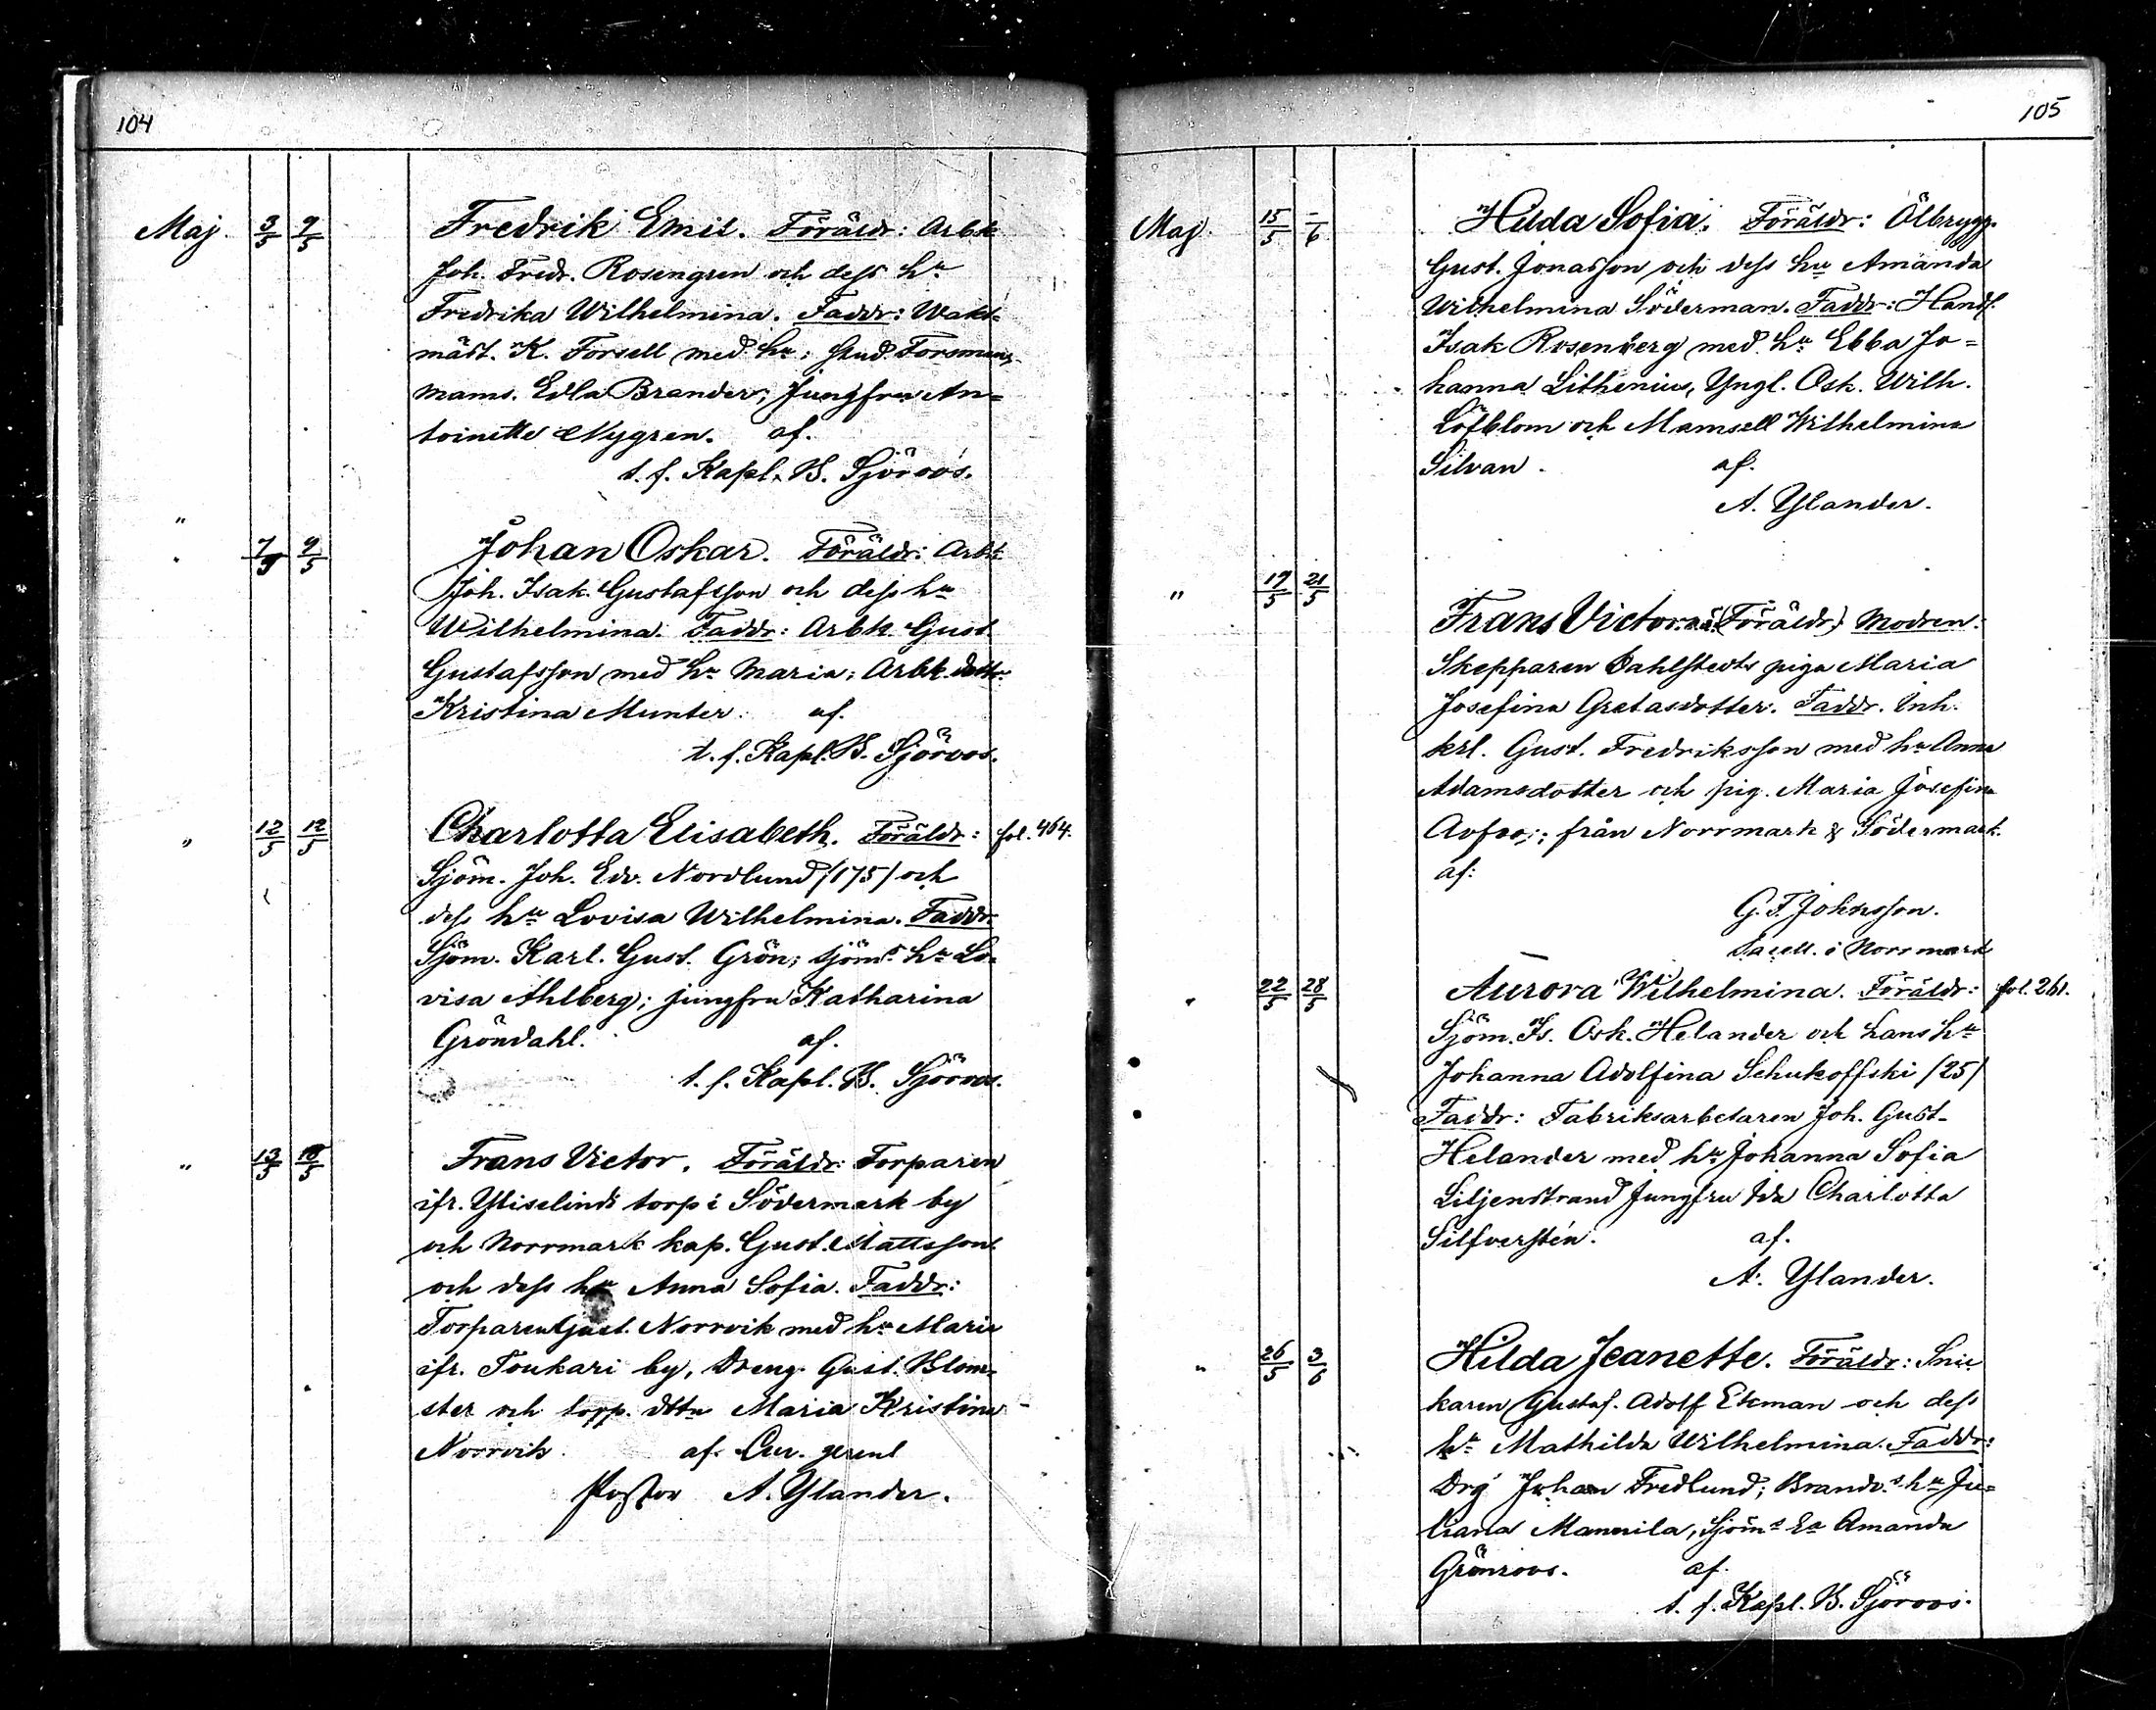 104
Maj. 3/5 9/5 Fredrik Emil. Föräldr: Arbk
Joh. Fredr. Rosengren och dess hu
Fredrika Wilhelmina. Faddr: Wakt-
mäst. K. Forsell med hu; Stud. Forsman;
Mams. Edla Brander; Jungfru An-
toinette Nygren. af.
t. f. Kapl. B. Sjöroos.
"
7/5 9/5 Johan Oskar. Föräldr: Arbk
Joh. Isak Gustafsson och dess hu
Wilhelmina. Faddr: Arbk. Gust.
Gustafsson med hu Maria; Arbk. dottr.
Kristina Munter. af.
t. f. Kapl. B. Sjöroos.
" 12/5 12/5 Charlotta Elisabeth. Föräldr: fol. 464.
Sjöm. Joh. Edv. Nordlund /175/ och
dess hu Lovisa Wilhelmina. Faddr.
Sjöm. Karl. Gust. Grön; sjöms hu Lo-
visa Ahlberg; jungfru Katharina
Gröndahl. af.
t. f. Kapl. B. Sjöroos.
" 13/5 18/5 Frans Victor. Föräldr: Torparen
ifr. Yliselinds torp i Södermark by
och Norrmark kap. Gust. Mattsson
och dess hu Anna Sofia. Faddr:
Torparen Gust. Norrvik med hu Maria
ifr. Toukari by, Dreng Gust. Blom-
ster och torp. dttr Maria Kristina
Norrvik. af. Cur. gerent
Pastor A. Ylander.
105
Maj. 15/5 -/6 Hilda Sofia. Föräldr: Ölbrygg.
Gust. Jonasson och dess hu Amanda
Wilhelmina Söderman. Faddr: Handl.
Isak Rosenberg med hu Ebba Jo-
hanna Lithenius, Yngl. Osk. Wilh.
Löfblom och Mamsell Wilhelmina
Silvan. af.
A. Ylander.
" 19/5 21/5 Frans Victor. (Föräldr) Modren:
Skepparen Dahlstedts piga Maria
Josefina Gretasdotter. Faddr. Inh.
krl. Gust. Fredriksson med hu Anna
Adamsdotter och pig. Maria Josefina
från Norrmark & Södermark.
af:
G. F. Johnsson.
Sacell. i Norrmark
" 22/5 28/5 Aurora Wilhelmina. Föräldr: fol. 261.
Sjöm. Is. Osk. Helander och hans hu
Johanna Adolfina Schukoffski /25/
Faddr: Fabriksarbetaren Joh. Gust.
Helander med hu Johanna Sofia
Liljenstrand Jungfru Ida Charlotta
Silfverstén. af.
A. Ylander.
" 26/5 3/6 Hilda Jeanette. Föräldr: Snic
karen Gustaf. Adolf Ekman och dess
hu Mathilda Wilhelmina. Faddr:
Drg Johan Fredlund; Brandv.s hu Ju-
liana Mannila, Sjöms Ea Amanda
Grönroos. af.
t. f. Kapl. B. Sjöroos.